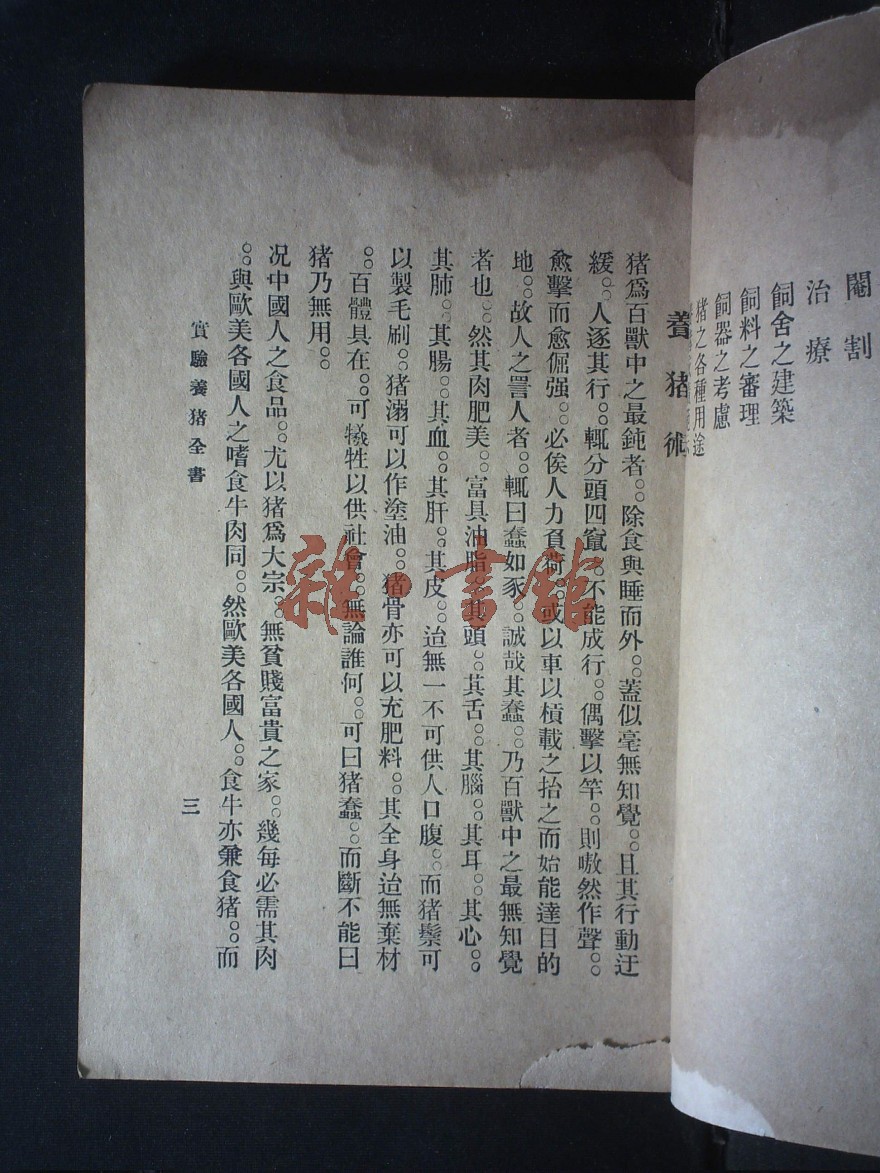 閹割
治療
飼舍之建築
飼料之審理
飼器之考慮
猪之各種用途
養猪術
猪爲百獸中之最鈍者。。除食與睡而外。。蓋似毫無知覺。。且其行動迂
緩。。人逐其行。。輒分頭四竄。。不能成行。。偶擊以竿。。則嗷然作聲。。
愈擊而愈倔强。。必俟人力負荷。。或以車以槓載之抬之而始能達目的
地。。故人之詈人者。。輒曰蠢如豕。。誠哉其蠢。。乃百獸中之最無知覺
者也。。然其肉肥美。。富具油脂。。其頭。。其舌。。其腦。。其耳。。其心。。
其肺。。其腸。。其血。。其肝。。其皮。。迨無一不可供人口腹。。而猪鬃可
以製毛刷。。猪溺可以作塗油。。猪骨亦可以充肥料。。其全身迨無棄材
。。百體具在。。可犧牲以供社會。。無論誰何。。可曰猪蠢。。而斷不能曰
猪乃無用。。
况中國人之食品。。尤以猪爲大宗。。無貧賤富貴之家。。幾每必需其肉
。。與歐美各國人之嗜食牛肉同。。然歐美各國人。。食牛亦兼食猪。。而
實驗養猪全書
三
雜·書館